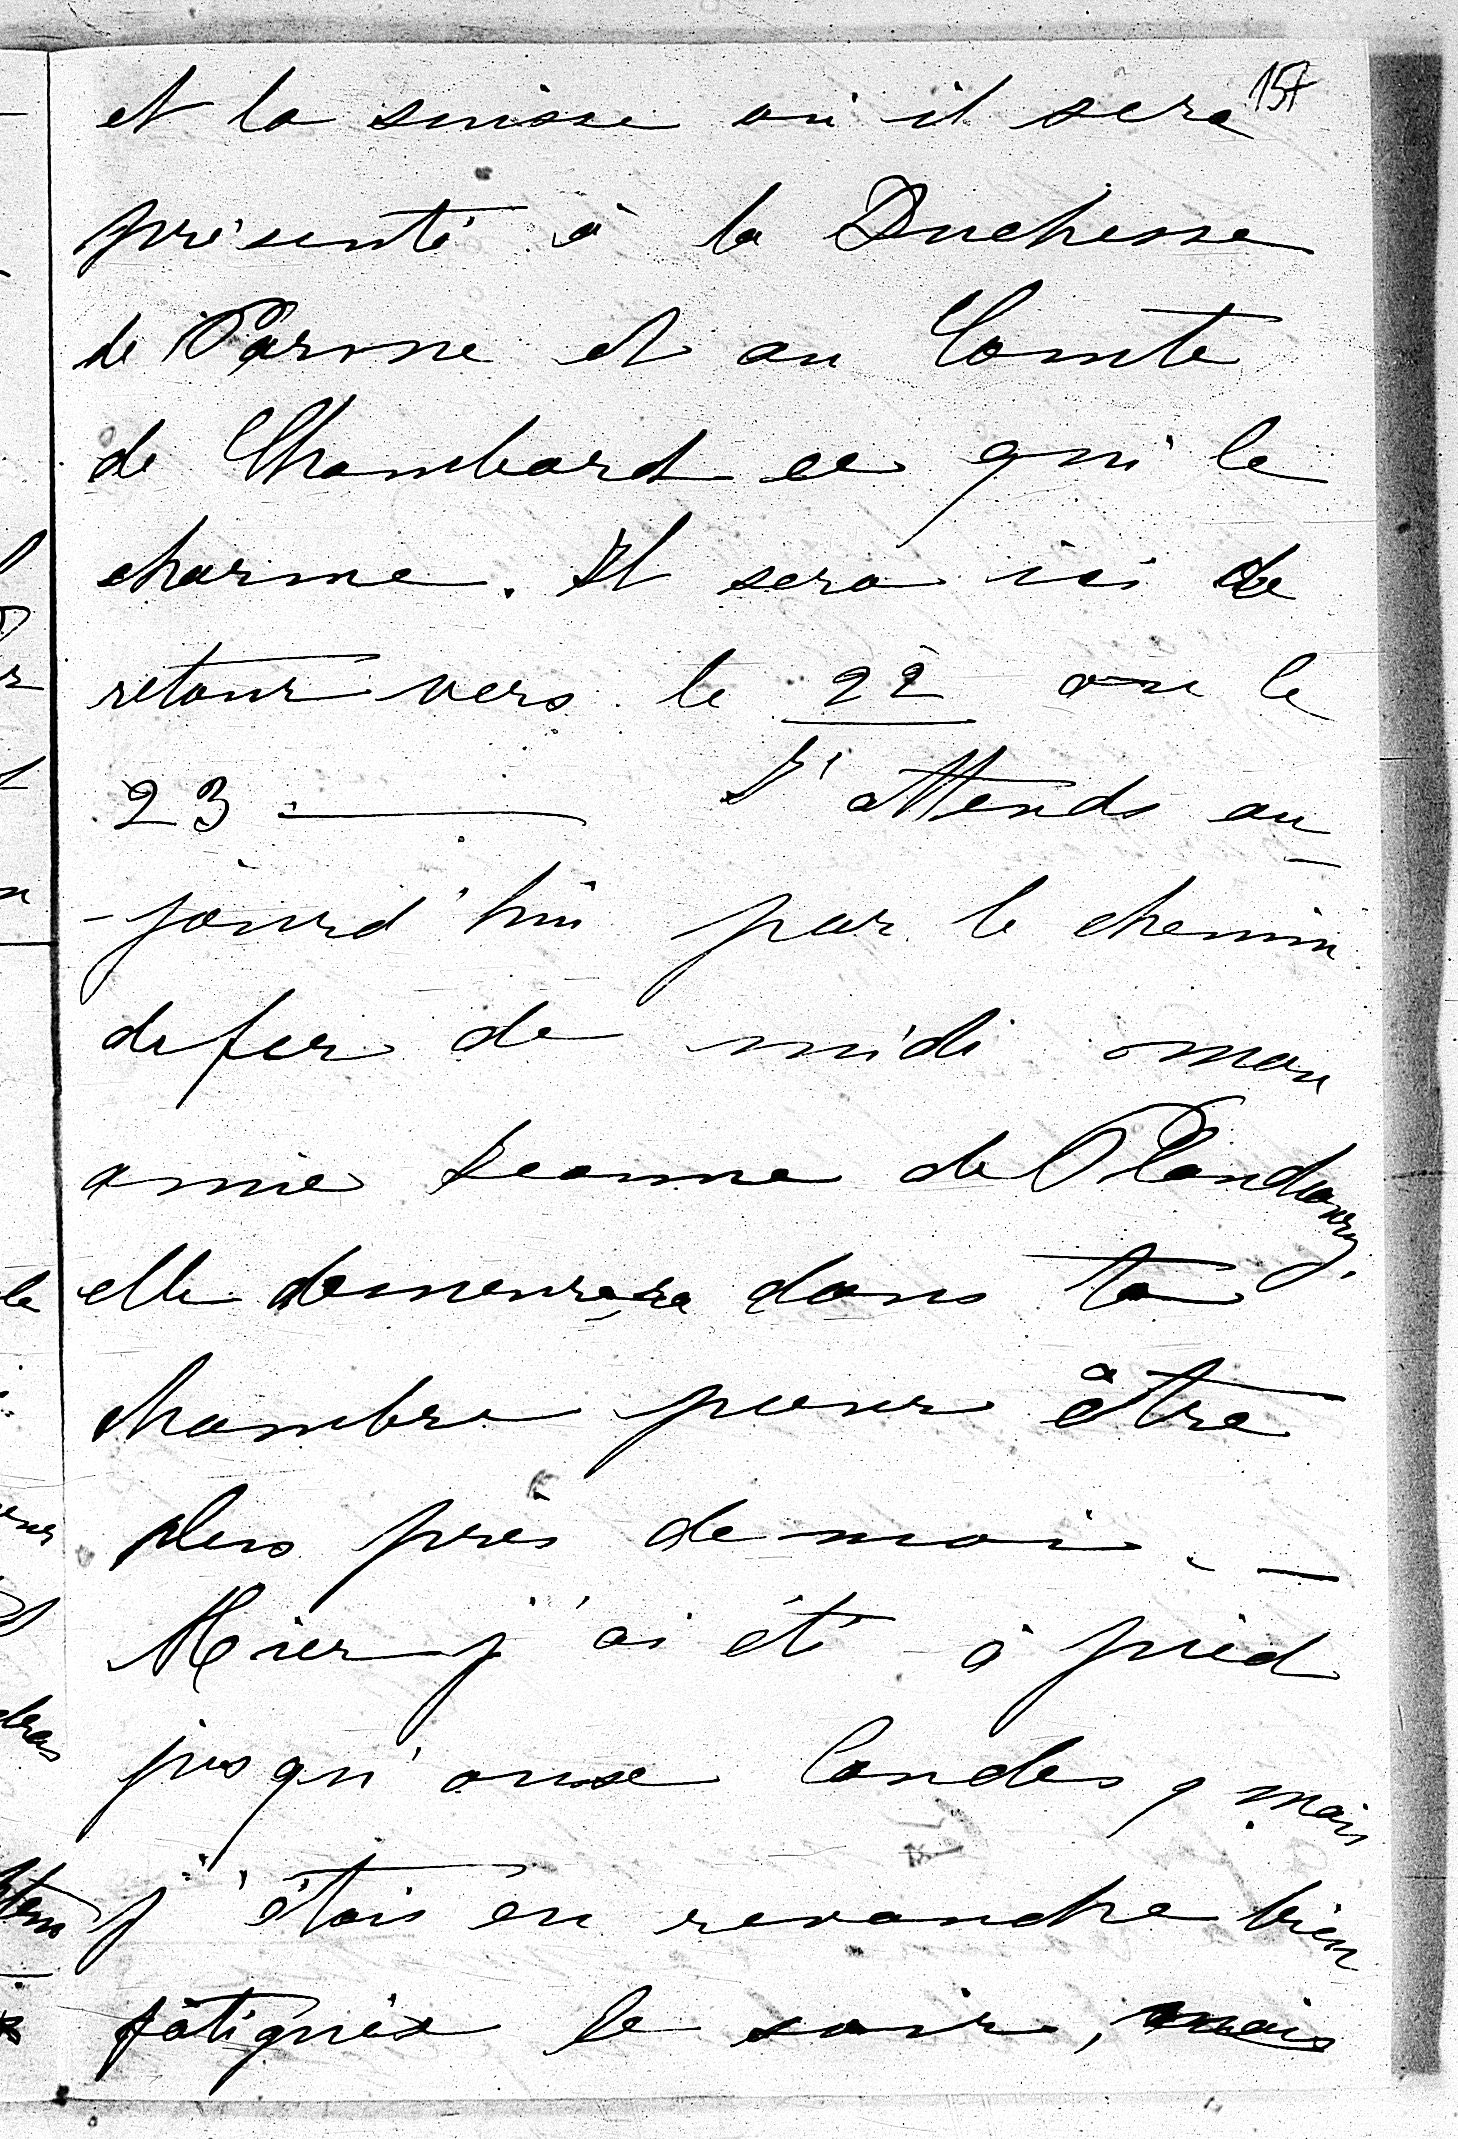 157
et la suisse où il sera
présenté à la Duchesse
de Parme et au Comte
de Chambord ce qui le
charme. Il sera ici de
retour vers le 22 ou le
23 — J'attends au-
-jourd'hui par le chemin
de fer de midi mon
amie Jeanne de
elle demeurera dans ta
chambre pour être
plus près de moi. —
Hier j'ai été à pied
jusqu'aux Landes, mais
j'étais en revanche bien
fatiguée le soir, mais